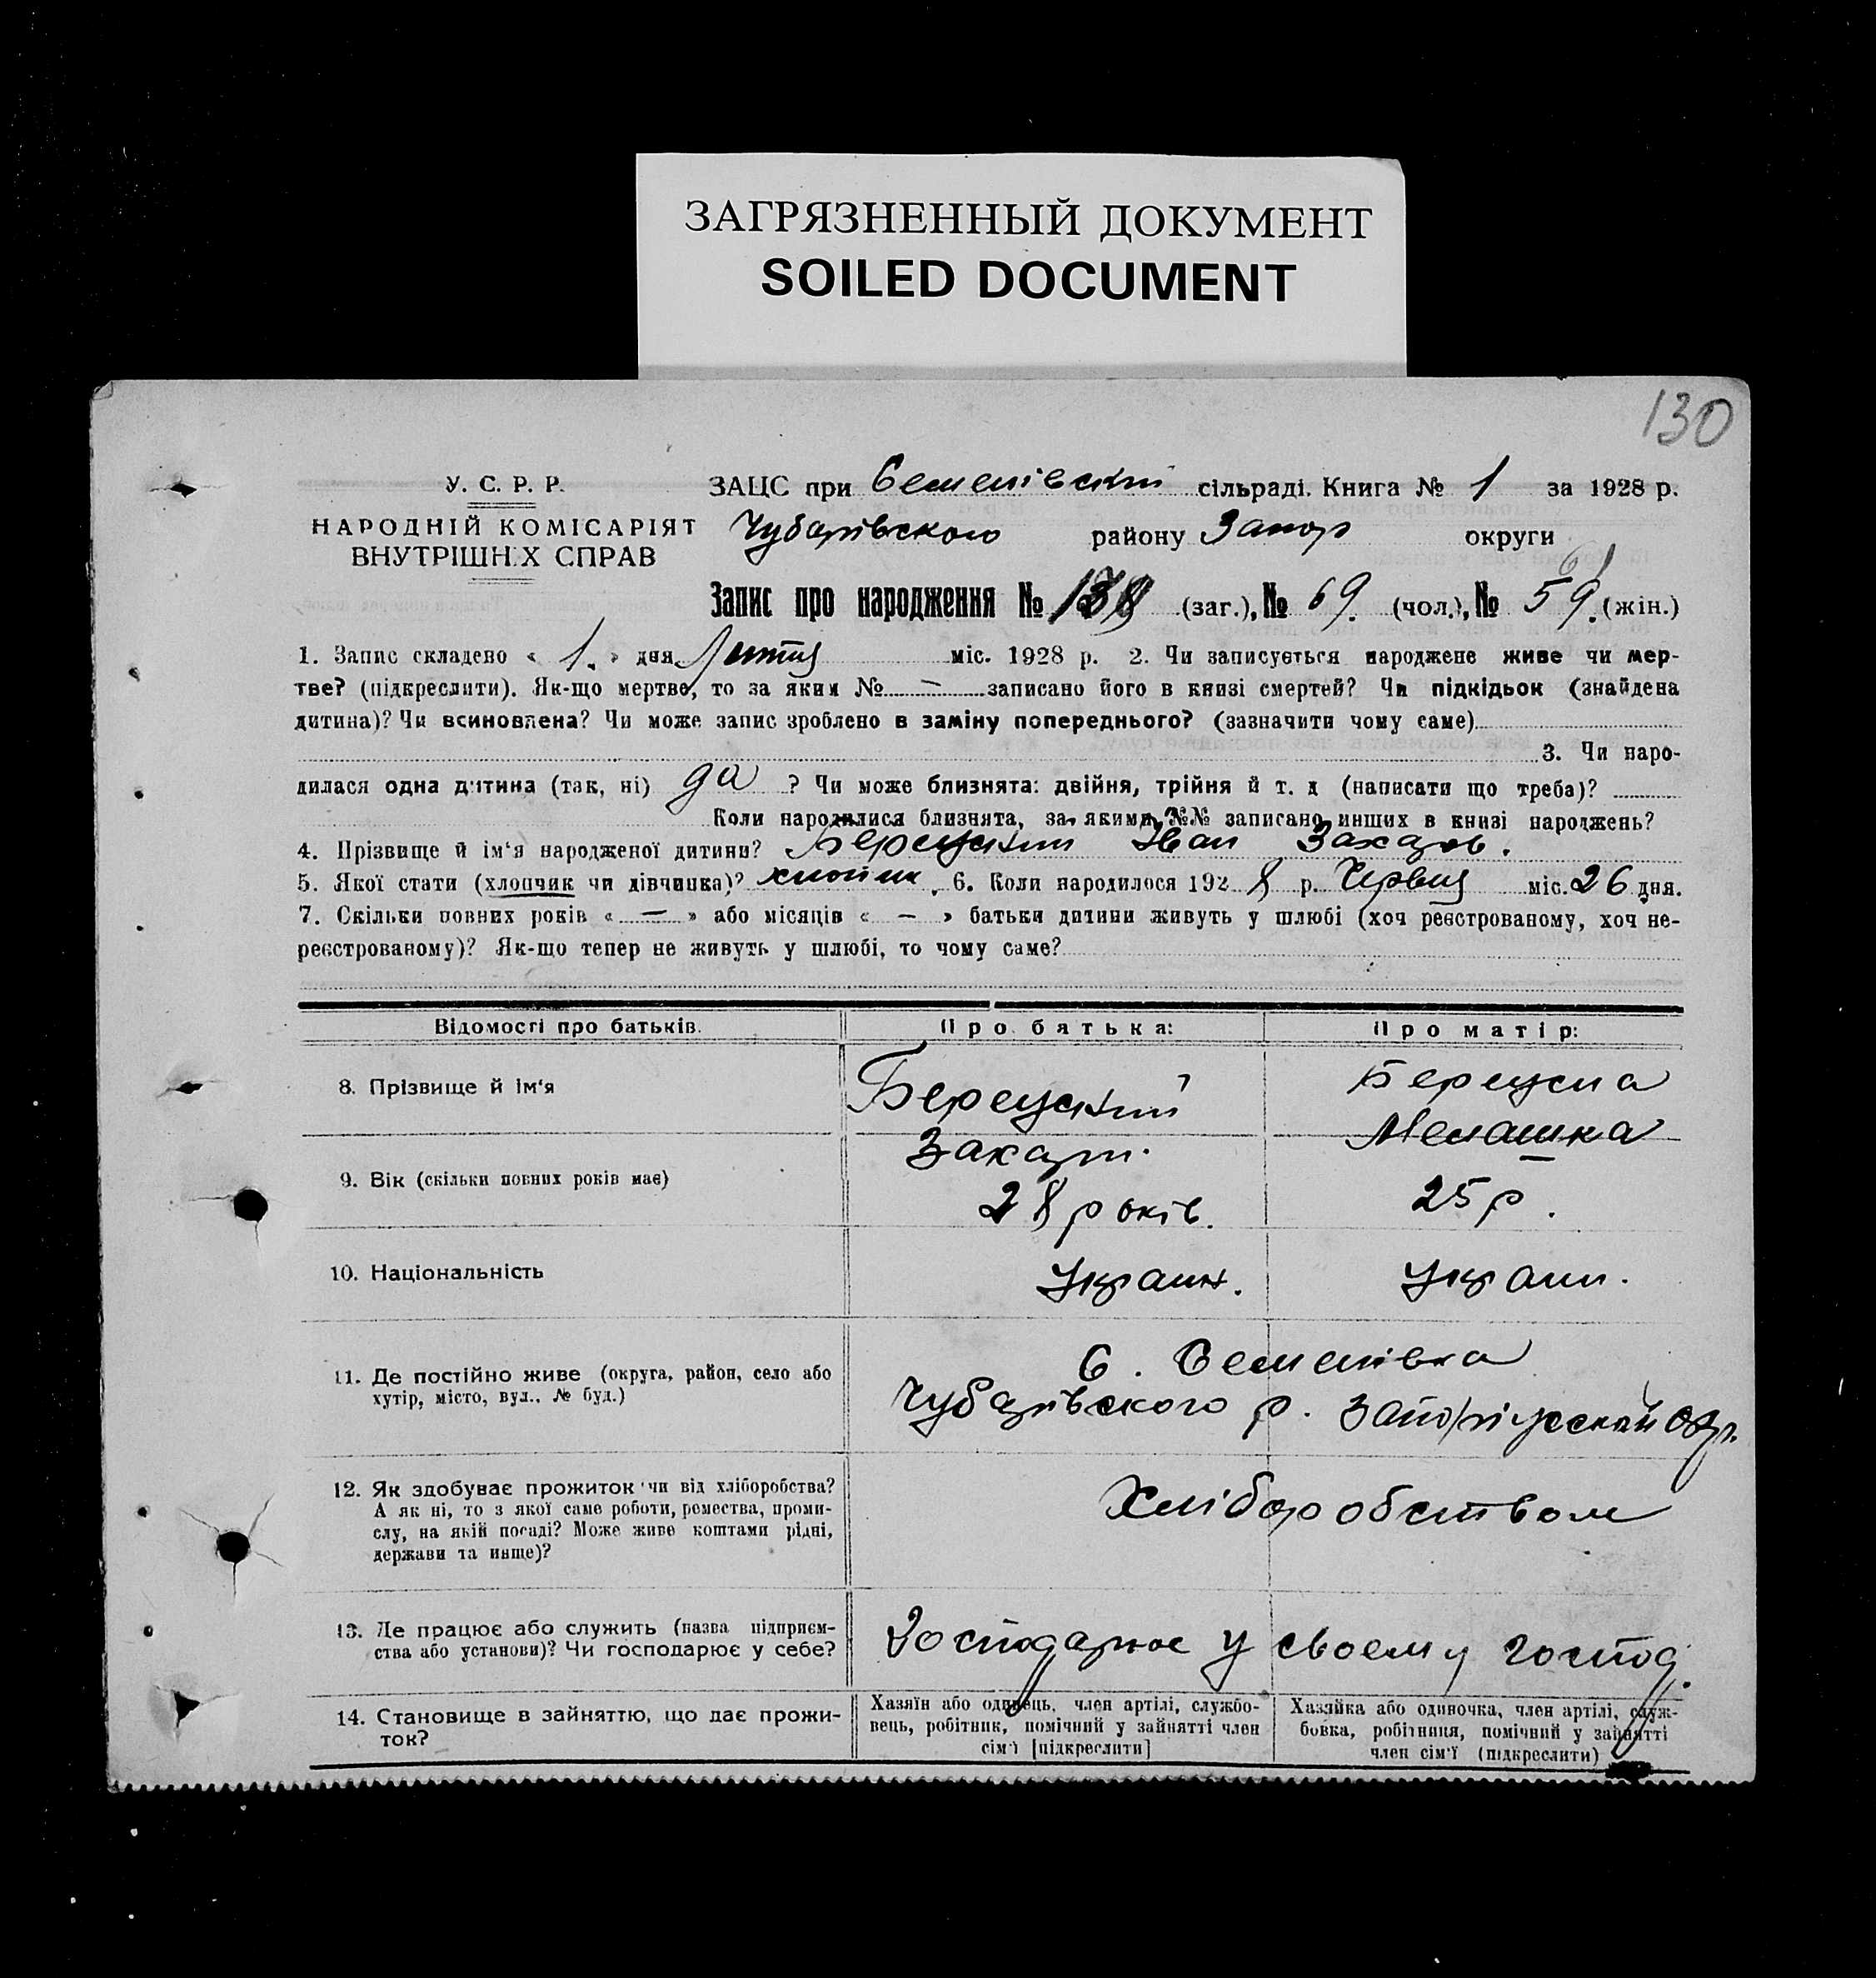 ЗАГРЯЗНЕННЫЙ ДОКУМЕНТ
SOILED DOCUMENT
130
У. С. Р. Р.
НАРОДНІЙ КОМІСАРІЯТ
ВНУТРІШНІХ СПРАВ
ЗАЦС при Семенівскій сільраді. Книга № 1 за 1928 р.
Чубарівского району Запор округи
61
Запис про народження № (заг.), № 69. (чол.), № 59. (жін.)
1. Запис складено « 1. » дня Липця міс. 1928 р. 2. Чи записується народжене живе чи мер-
тве? (підкреслити). Як-що мертве, то за яким № — записано його в книзі смертей? Чи підкідьок (знайдена
дитина)? Чи всиновлена? Чи може запис зроблено в заміну попереднього? (зазначити чому саме)
3. Чи наро-
дилася одна дитина (так, ні) да ? Чи може близнята: двійня, трійня й т. д (написати що треба)?
Коли народилися близнята, за якими №№ записано инших в книзі народжень?
4. Прізвище й ім'я народженої дитини? Іван Захаров.
5. Якої стати (хлопчик чи дівчинка)? 6. Коли народилося 1928 р. Червця міс. 26 дня.
7. Скільки повних років « — » або місяців « — » батьки дитини живуть у шлюбі (хоч реєстрованому, хоч не-
реєстрованому)? Як-що тепер не живуть у шлюбі, то чому саме?
Відомості про батьків. Про батька: Про матір:
8. Прізвище й ім'я
Захарій
Мелашка
9. Вік (скільки повних років має) 28 років. 25 р.
10. Національність Україн. Украин.
11. Де постійно живе (округа, район, село або
хутір, місто, вул., № буд.)
С. Семенівка
Чубарівского р.
12. Як здобуває прожиток чи від хліборобства?
А як ні, то з якої саме роботи, ремества, проми-
слу, на якій посаді? Може живе коштами рідні,
держави та инще)?
Хліборобством
13. Де працює або служить (назва підприєм-
ства або установи)? Чи господарює у себе?
Господарює у своему господ.
14. Становище в зайняттю, що дає прожи-
ток?
Хазяїн або одинець, член артілі, службо-
вець, робітник, помічний у зайнятті член
сім'ї [підкреслити]
Хазяйка або одиночка, член артілі, служ-
бовка, робітниця, помічний у зайнятті
член сім'ї (підкреслити)